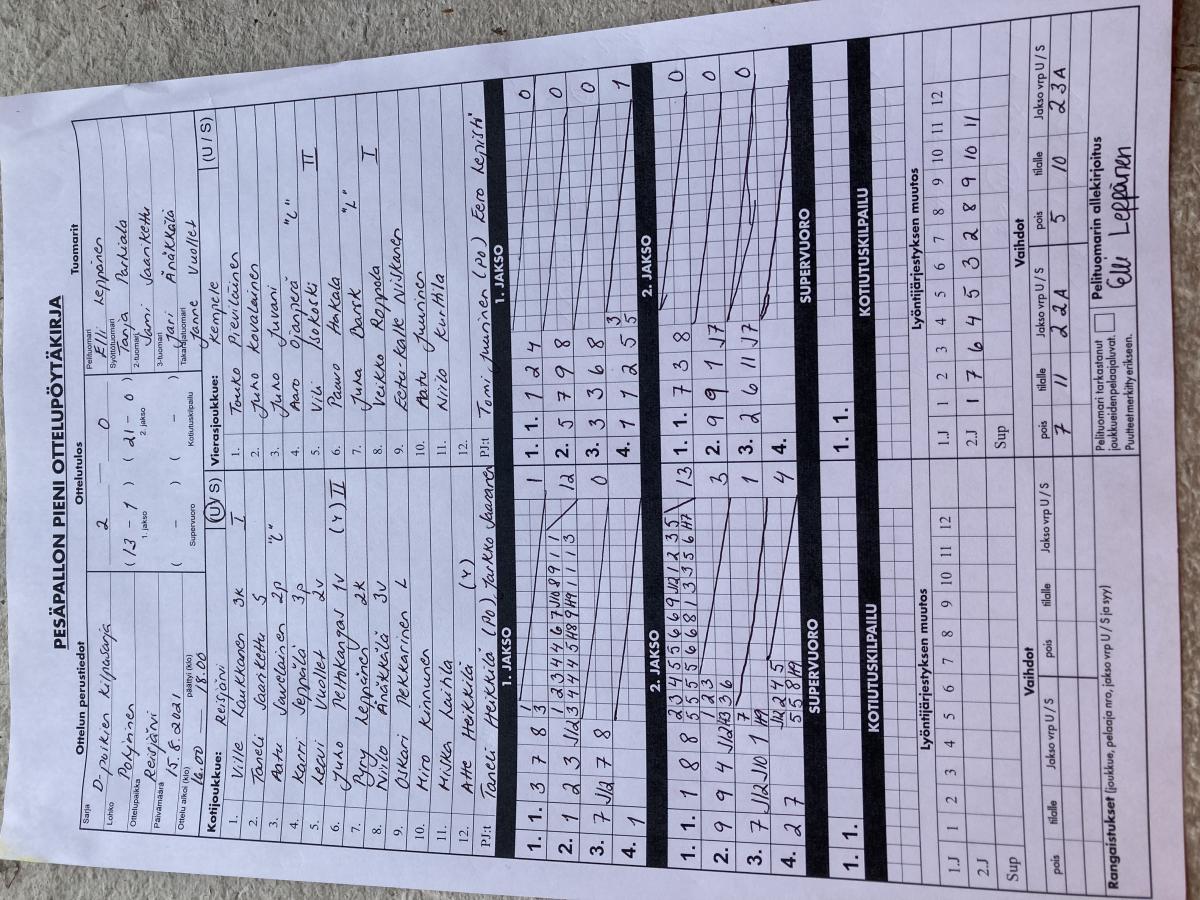 PESÄPALLON PIENI OTTELUPÖYTÄKIRJA
Ottelun perustiedot Ottelutulos Tuomarit
Sarja D-poikien kilpasarja
Lohko Pohjoinen
Ottelupaikka Reisjärvi
Päivämäärä 15.8.2021
Ottelu alkoi (klo) 16.00 päättyi (klo) 18.00
2 — 0
(13 - 1) (21 - 0)
1. jakso 2. jakso
( - ) ( - )
Supervuoro Kotiutuskilpailu
Pelituomari Elli Leppänen
Syöttötuomari Tanja Parhiala
2-tuomari Jami Saarikettu
3-tuomari Jari Änäkkälä
Takarajatuomari Janne Vuollet
Kotijoukkue: Reisjärvi (U / S)
1. Ville Laukkanen 3k I
2. Taneli Saarikettu 5
3. Aatu Saurelainen 2p "L"
4. Karri Seppälä 3p
5. Leevi Vuollet 2v
6. Juho Peltokangas 1v (Y) II
7. Pyry Leppänen 2k
8. Niilo Änäkkälä 3v
9. Oskari Pekkarinen L
10. Hiro Kinnunen
11. Miska Luihla
12. Atte Heikkilä (Y)
PJ:t Taneli Heikkilä (PO), Jarkko Saaranen
Vierasjoukkue: Kempele (U / S)
1. Touko Pieviläinen
2. Juho Kovalainen
3. Juho Juvani
4. Aaro Ojanperä "L"
5. Vili Isokoski III
6. Paavo Hankala
7. Juha Bark "L"
8. Veikko Roppola I
9. Eetu-Kalle Niiskanen
10. Aatu Juuninen
11. Niilo Kurtila
12.
PJ:t Tomi Juuninen (PO) Eero Lepistö
1. JAKSO 1. JAKSO
1. 1. 3 7 8 1 3 1
2. 1 2 3 J12 1 2 3 4 4 6 7 J10 8 9 1 1 12
3 4 4 4 5 H8 9 H9 1 1 1 3
3. 7 J12 7 8 0
4. 1
1. 1. 1 2 4 0
2. 5 7 9 8 0
3. 3 3 6 8 0
4. 1 2 5 3 5 1
2. JAKSO 2. JAKSO
1. 1. 1 8 8 2 3 4 5 5 6 6 9 J12 1 2 3 5 13
5 5 5 5 6 6 8 1 3 3 5 6 H7
2. 9 9 4 J12 1 2 3 3
H3 3 6
3. 7 J12 J10 1 7 H9 1
4. 2 7 J12 2 4 5 4
5 5 8 H9
1. 1. 7 3 8 0
2. 9 9 1 J7 0
3. 2 6 11 J7 0
4.
SUPERVUORO SUPERVUORO
1. 1. 1. 1.
KOTIUTUSKILPAILU KOTIUTUSKILPAILU
Lyöntijärjestyksen muutos Lyöntijärjestyksen muutos
1.J 1 2 3 4 5 6 7 8 9 10 11 12
2.J
Sup
1.J 1 2 3 4 5 6 7 8 9 10 11 12
2.J 1 7 6 4 5 3 2 8 9 10 11
Sup
Vaihdot Vaihdot
pois tilalle Jakso vrp U / S pois tilalle Jakso vrp U / S
pois tilalle Jakso vrp U / S pois tilalle Jakso vrp U / S
7 11 2 2A 5 10 2 3A
Rangaistukset (joukkue, pelaaja nro, jakso vrp U / S ja syy)
Pelituomari tarkastanut
joukkueiden pelaajaluvat.
Puutteet merkitty erikseen.
Pelituomarin allekirjoitus
Elli Leppänen